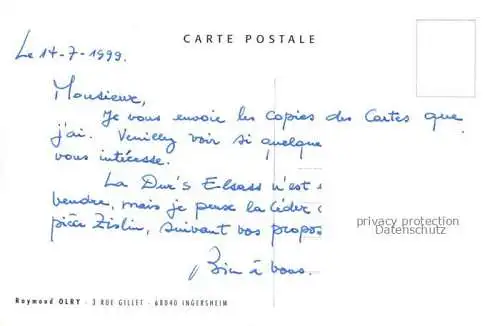 CARTE POSTALE
Le 14-7-1999.
Monsieur,
Je vous envoie les copies des Cartes que
j'ai. Veuillez voir si quelque
vous intéresse.
La Dur's Elsass n'est
vendre, mais je peux la céder
pièce Zislin, suivant vos propos
Bien à vous.
privacy protection
Datenschutz
Raymond OLRY - 3 RUE GILLET - 68040 INGERSHEIM